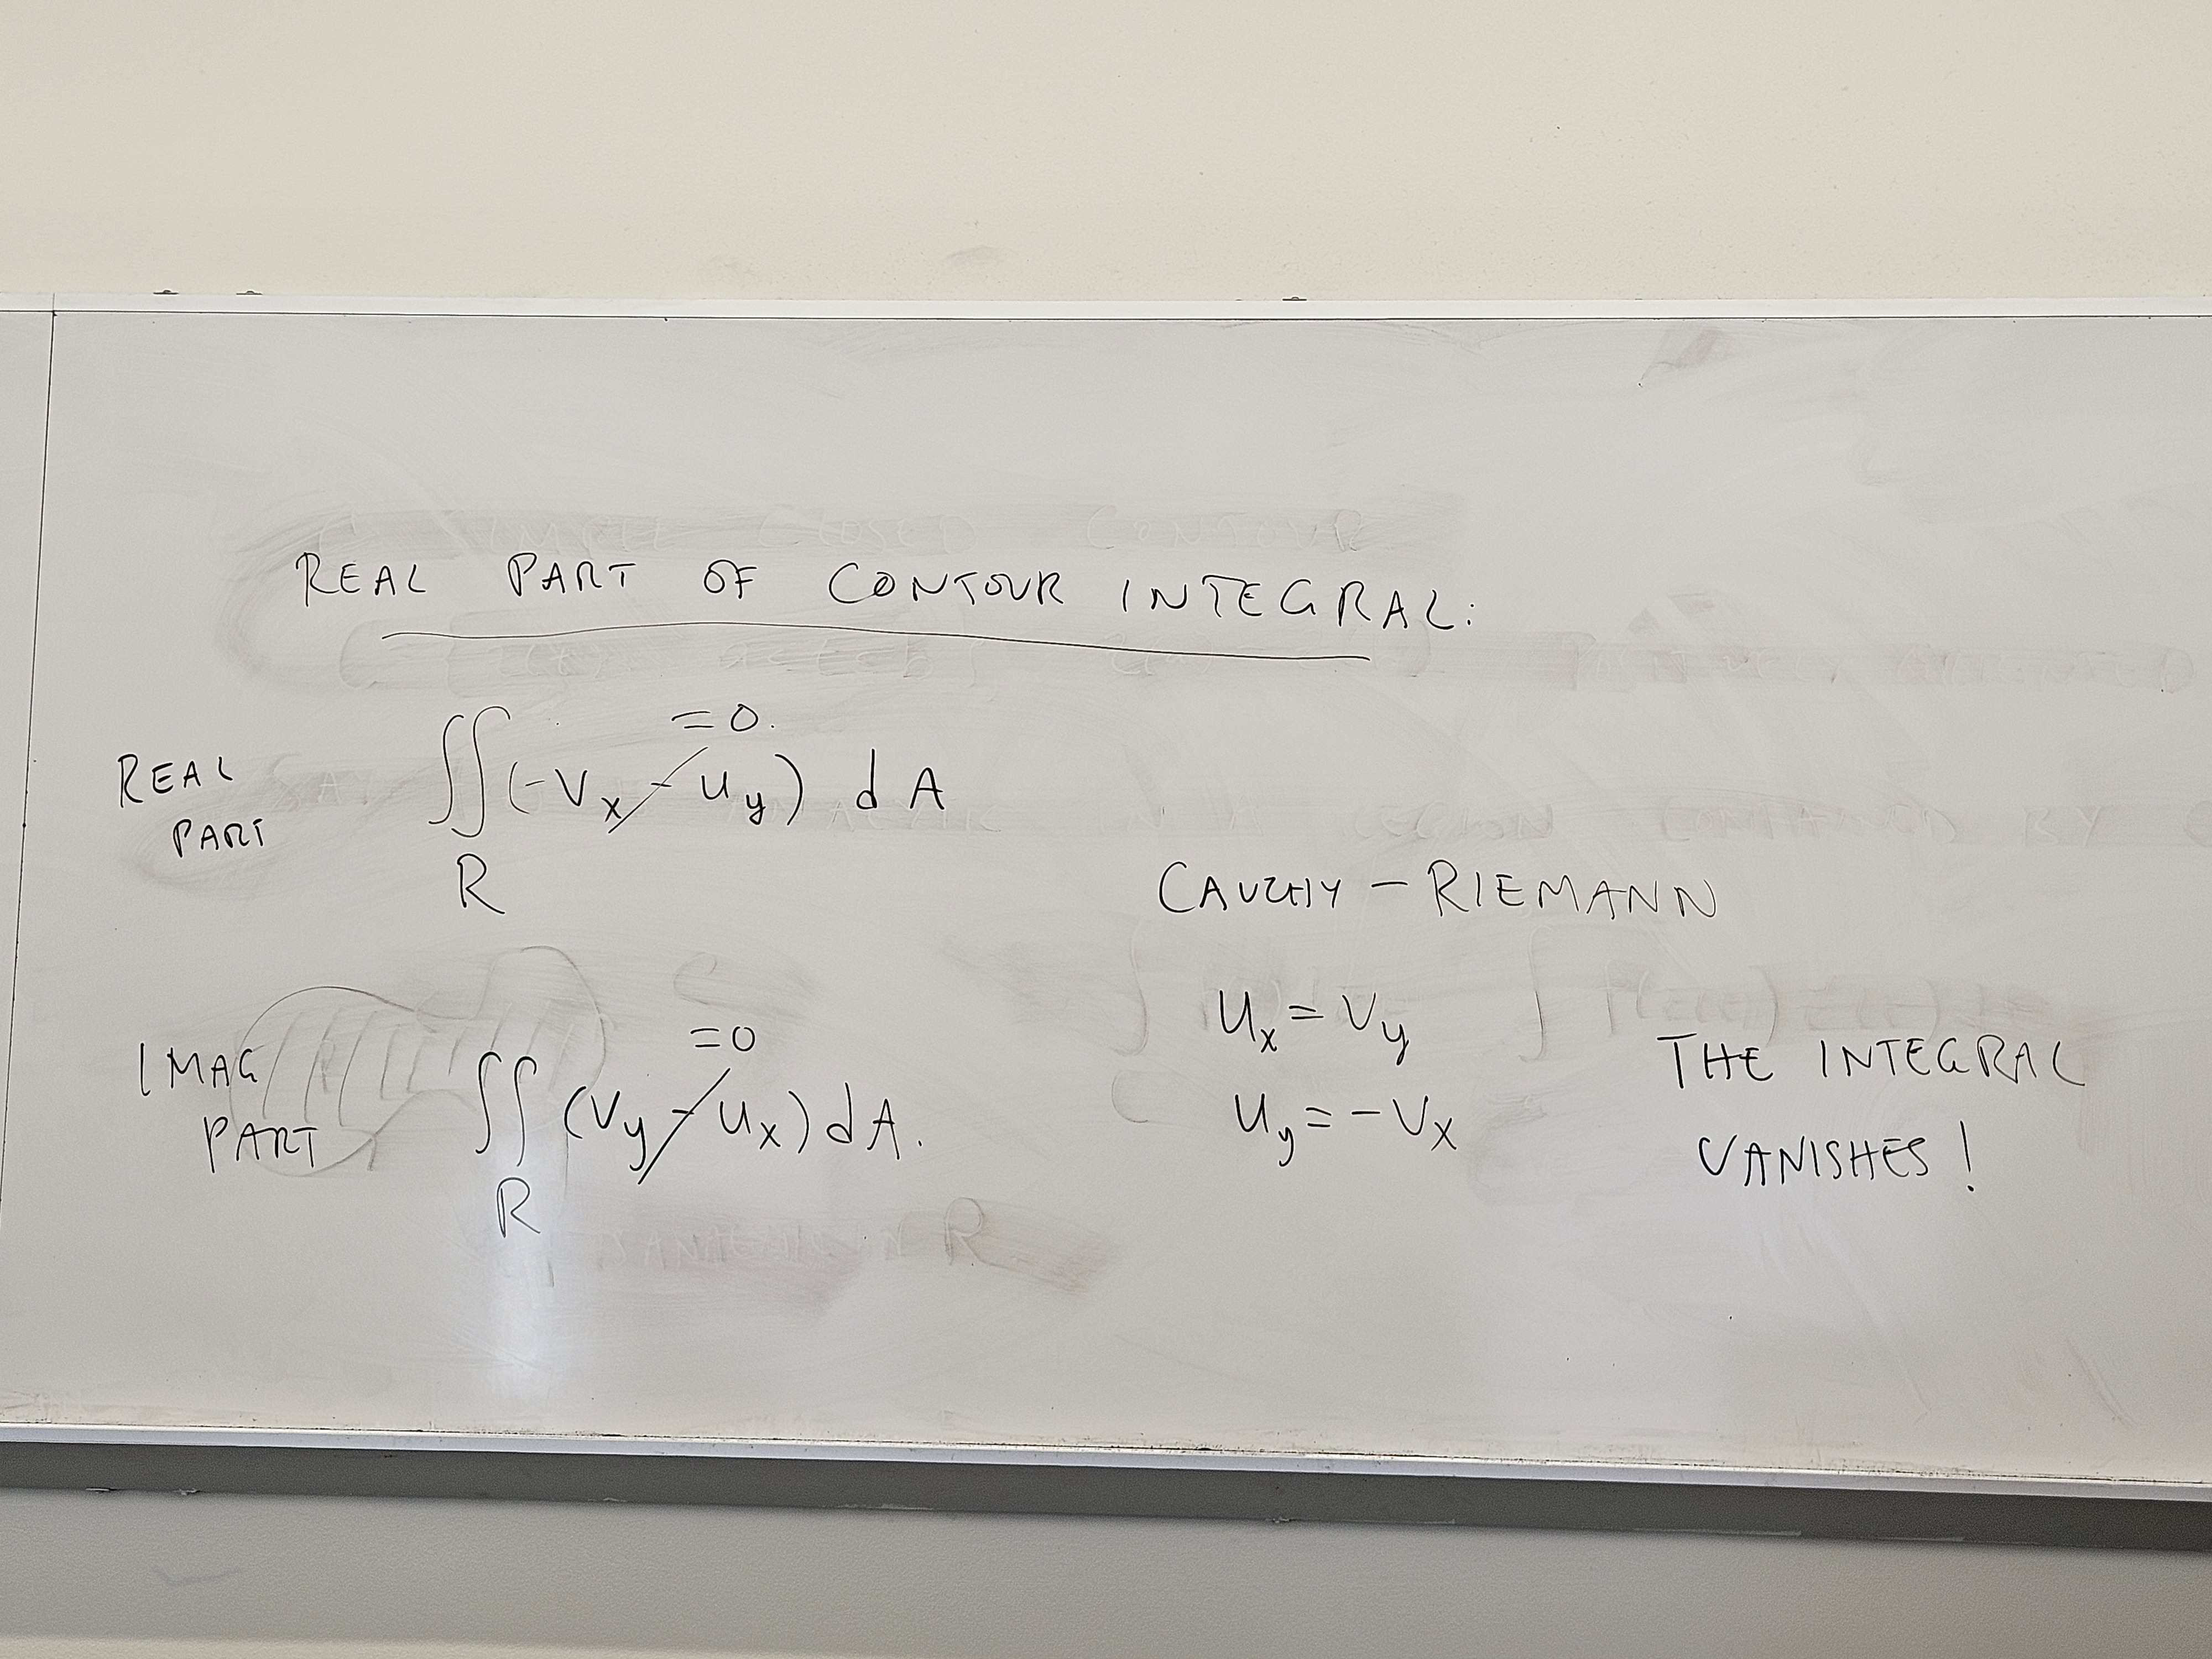 C SIMPLE CLOSED CONTOUR
REAL PART OF CONTOUR INTEGRAL:
REAL PART
∬_R (-v_x - u_y) dA
=0.
IMAG PART
∬_R (v_y - u_x) dA.
=0
CAUCHY - RIEMANN
u_x = v_y
u_y = -v_x
THE INTEGRAL
VANISHES!